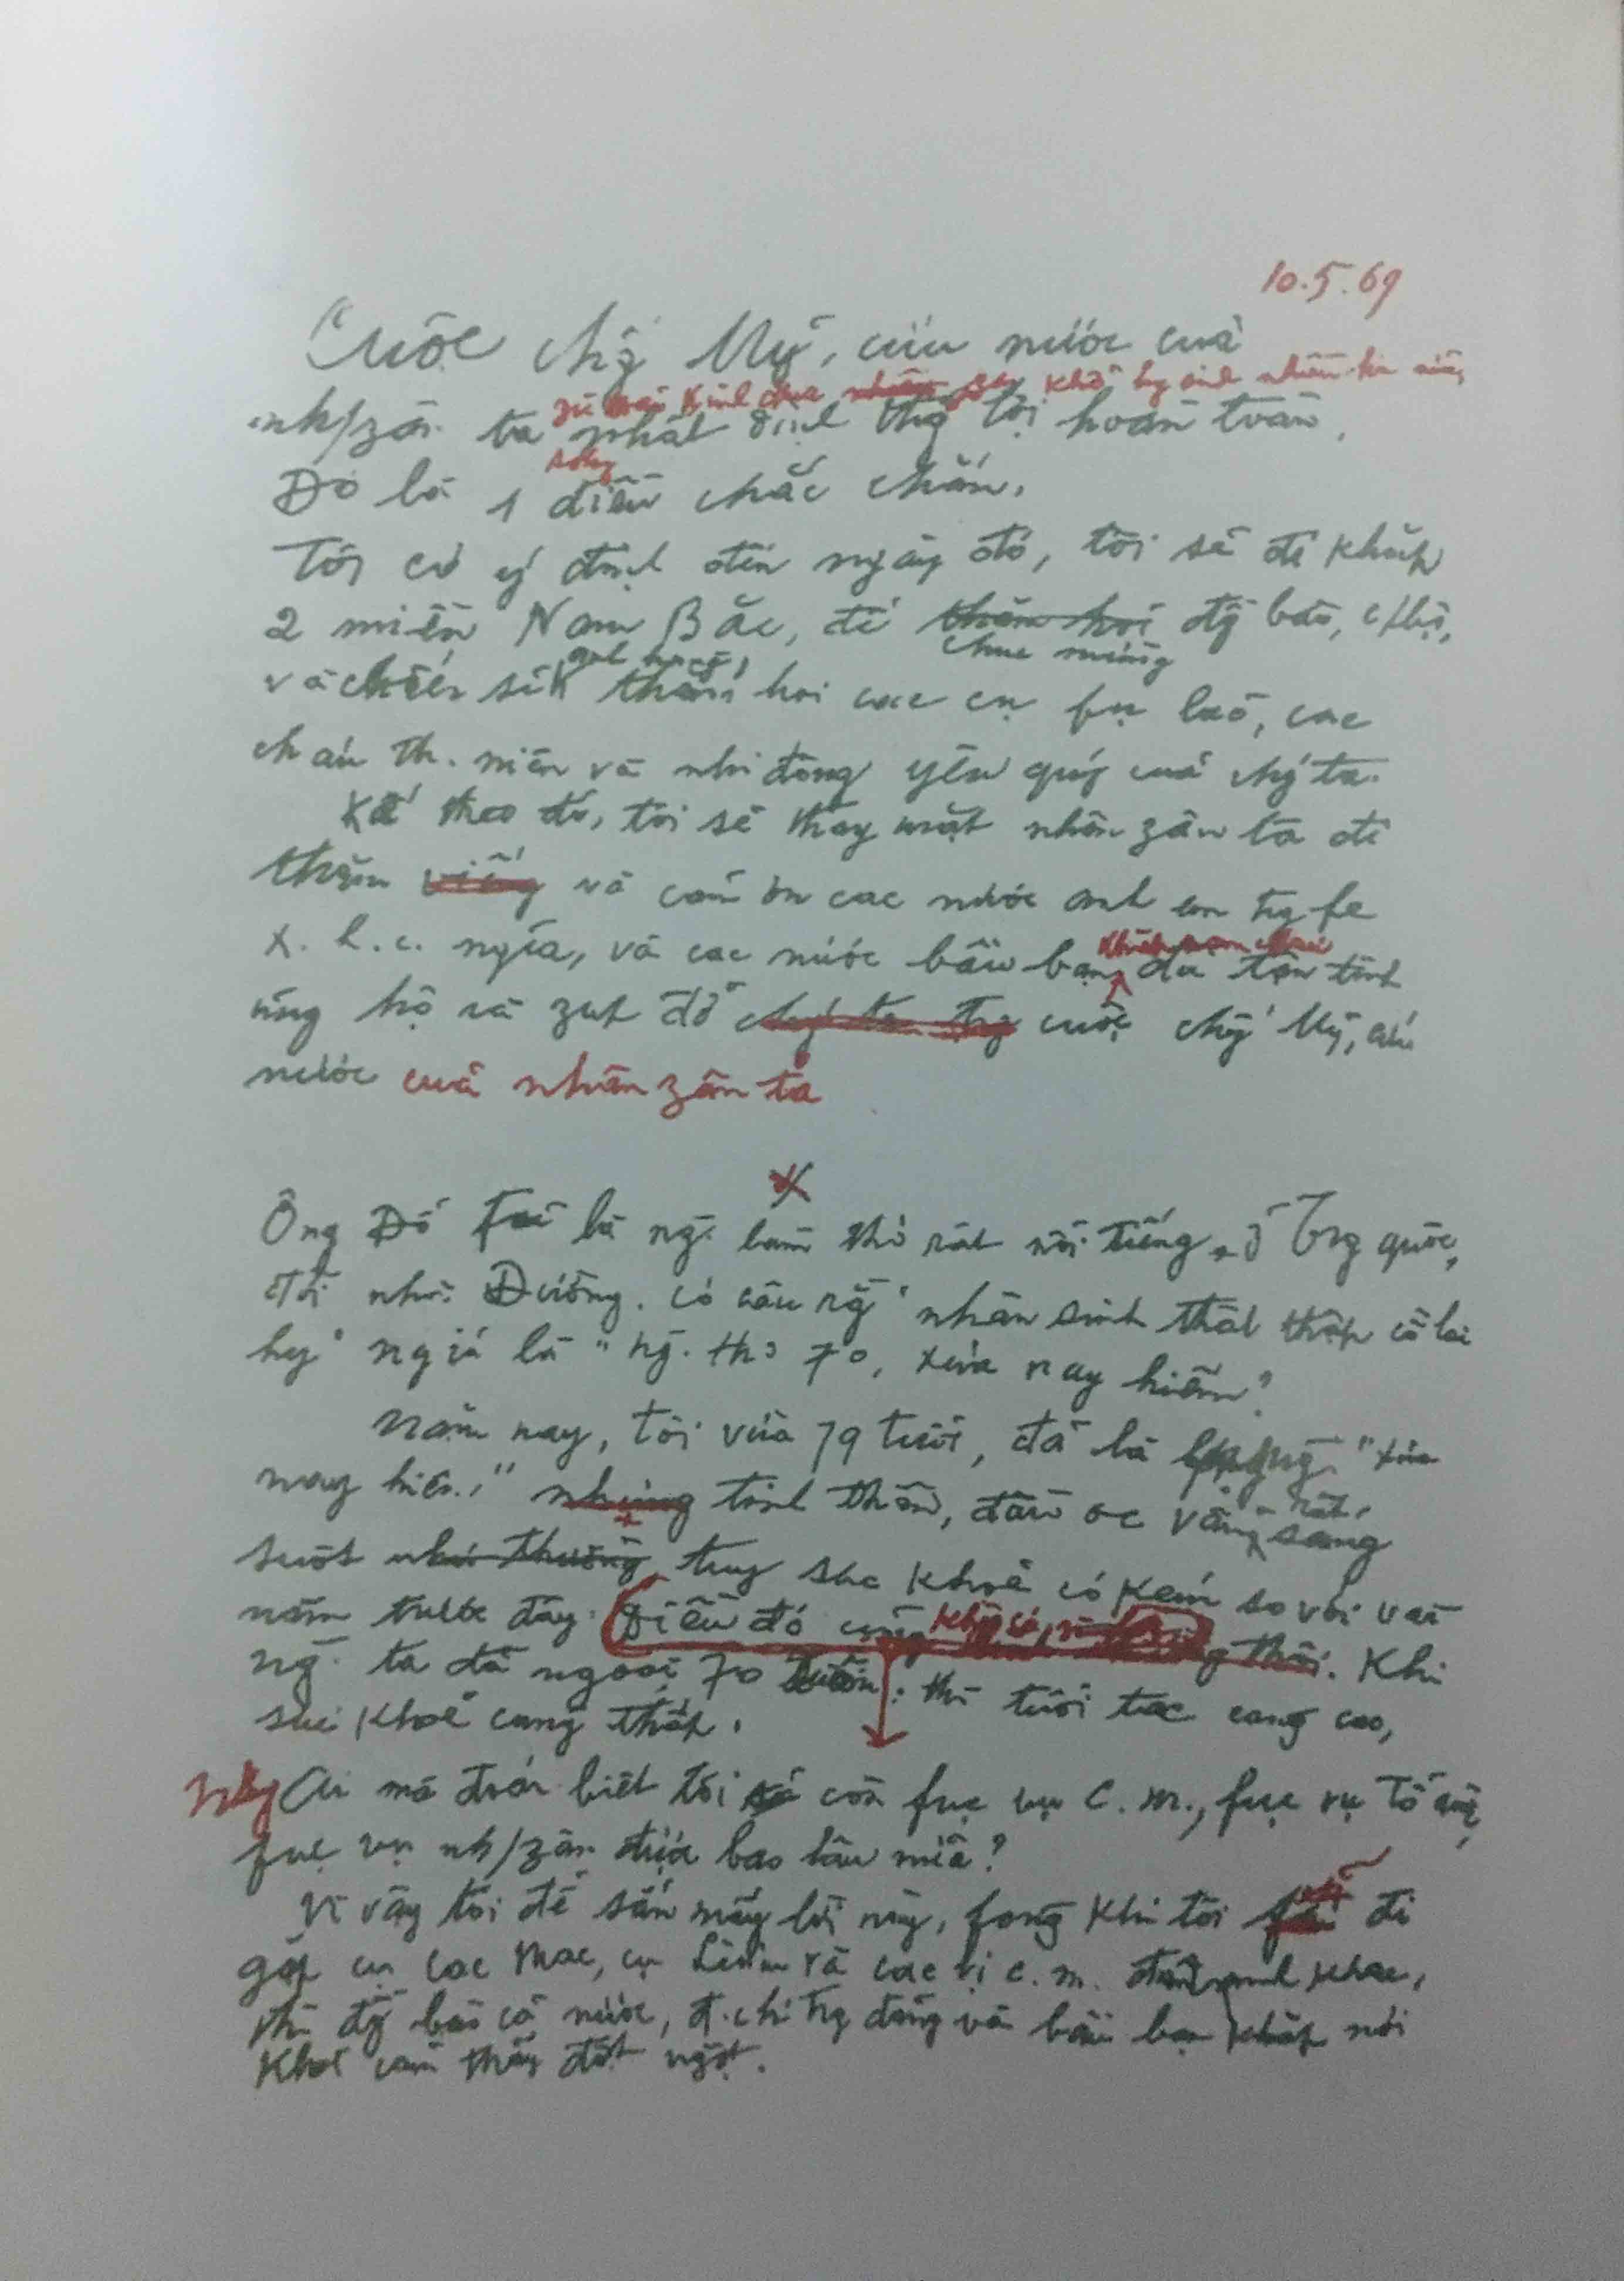 10.5.69
Cuộc chộ́g Mỹ, cứu nước của
zù fải kinh qua gay khổ hy sinh nhiều hơn nữa,
nh/zân ta nhất định thg lợi hoàn toàn.
Đó là 1 điều chắc chắn.
Tôi có ý định đến ngày đó, tôi sẽ đi khắp
2 miền Nam Bắc, để thăm hỏi đg̀ bào,
chúc mừng
và chiến sĩ anh hùng, thăm hỏi các cụ fụ lão, các
cháu th. niên và nhi đồng yêu quý của chǵ ta.
Kế theo đó, tôi sẽ thay mặt nhân zân ta đi
thăm viếng và cám ơn các nước anh em trg fe
x. h. c. ngĩa, và các nước bầu bạn đã tận tình
ủng hộ và zúp đỡ chǵ ta trg cuộc chộ́g Mỹ, cứu
nước của nhân zân ta
Ông Đỗ Fủ là ng̀ làm thơ rất nổi tiếng ở Trg quốc,
đời nhà Đường. Có câu rg̀ "nhân sinh thất thập cổ lai
hy" ngiã là "ng̀. thọ 70, xưa nay hiếm".
Năm nay, tôi vừa 79 tuổi, đã là "xưa
nay hiếm" nhưng tinh thần, đầu óc vẫn rất sáng
suốt như thường, tuy sức khoẻ có kém so với vài
năm trước đây. Điều đó cũng không có gì thôi. Khi
ng̀ ta đã ngoài 70 xuân, thì tuổi tác càng cao,
sức khoẻ càng thấp.
Nhg Ai mà đoán biết tôi còn fục vụ C.m., fục vụ Tổ quốc,
fục vụ nh/zân được bao lâu nữa?
Vì vậy tôi để sẵn mấy lời này, fòng khi tôi sẽ đi
gặp cụ Các Mác, cụ Lênin và các vị c.m. đàn anh khác,
thì đg̀ bào cả nước, đ.chí trg đảng và bầu bạn khắp nơi
khỏi cảm thấy đột ngột.